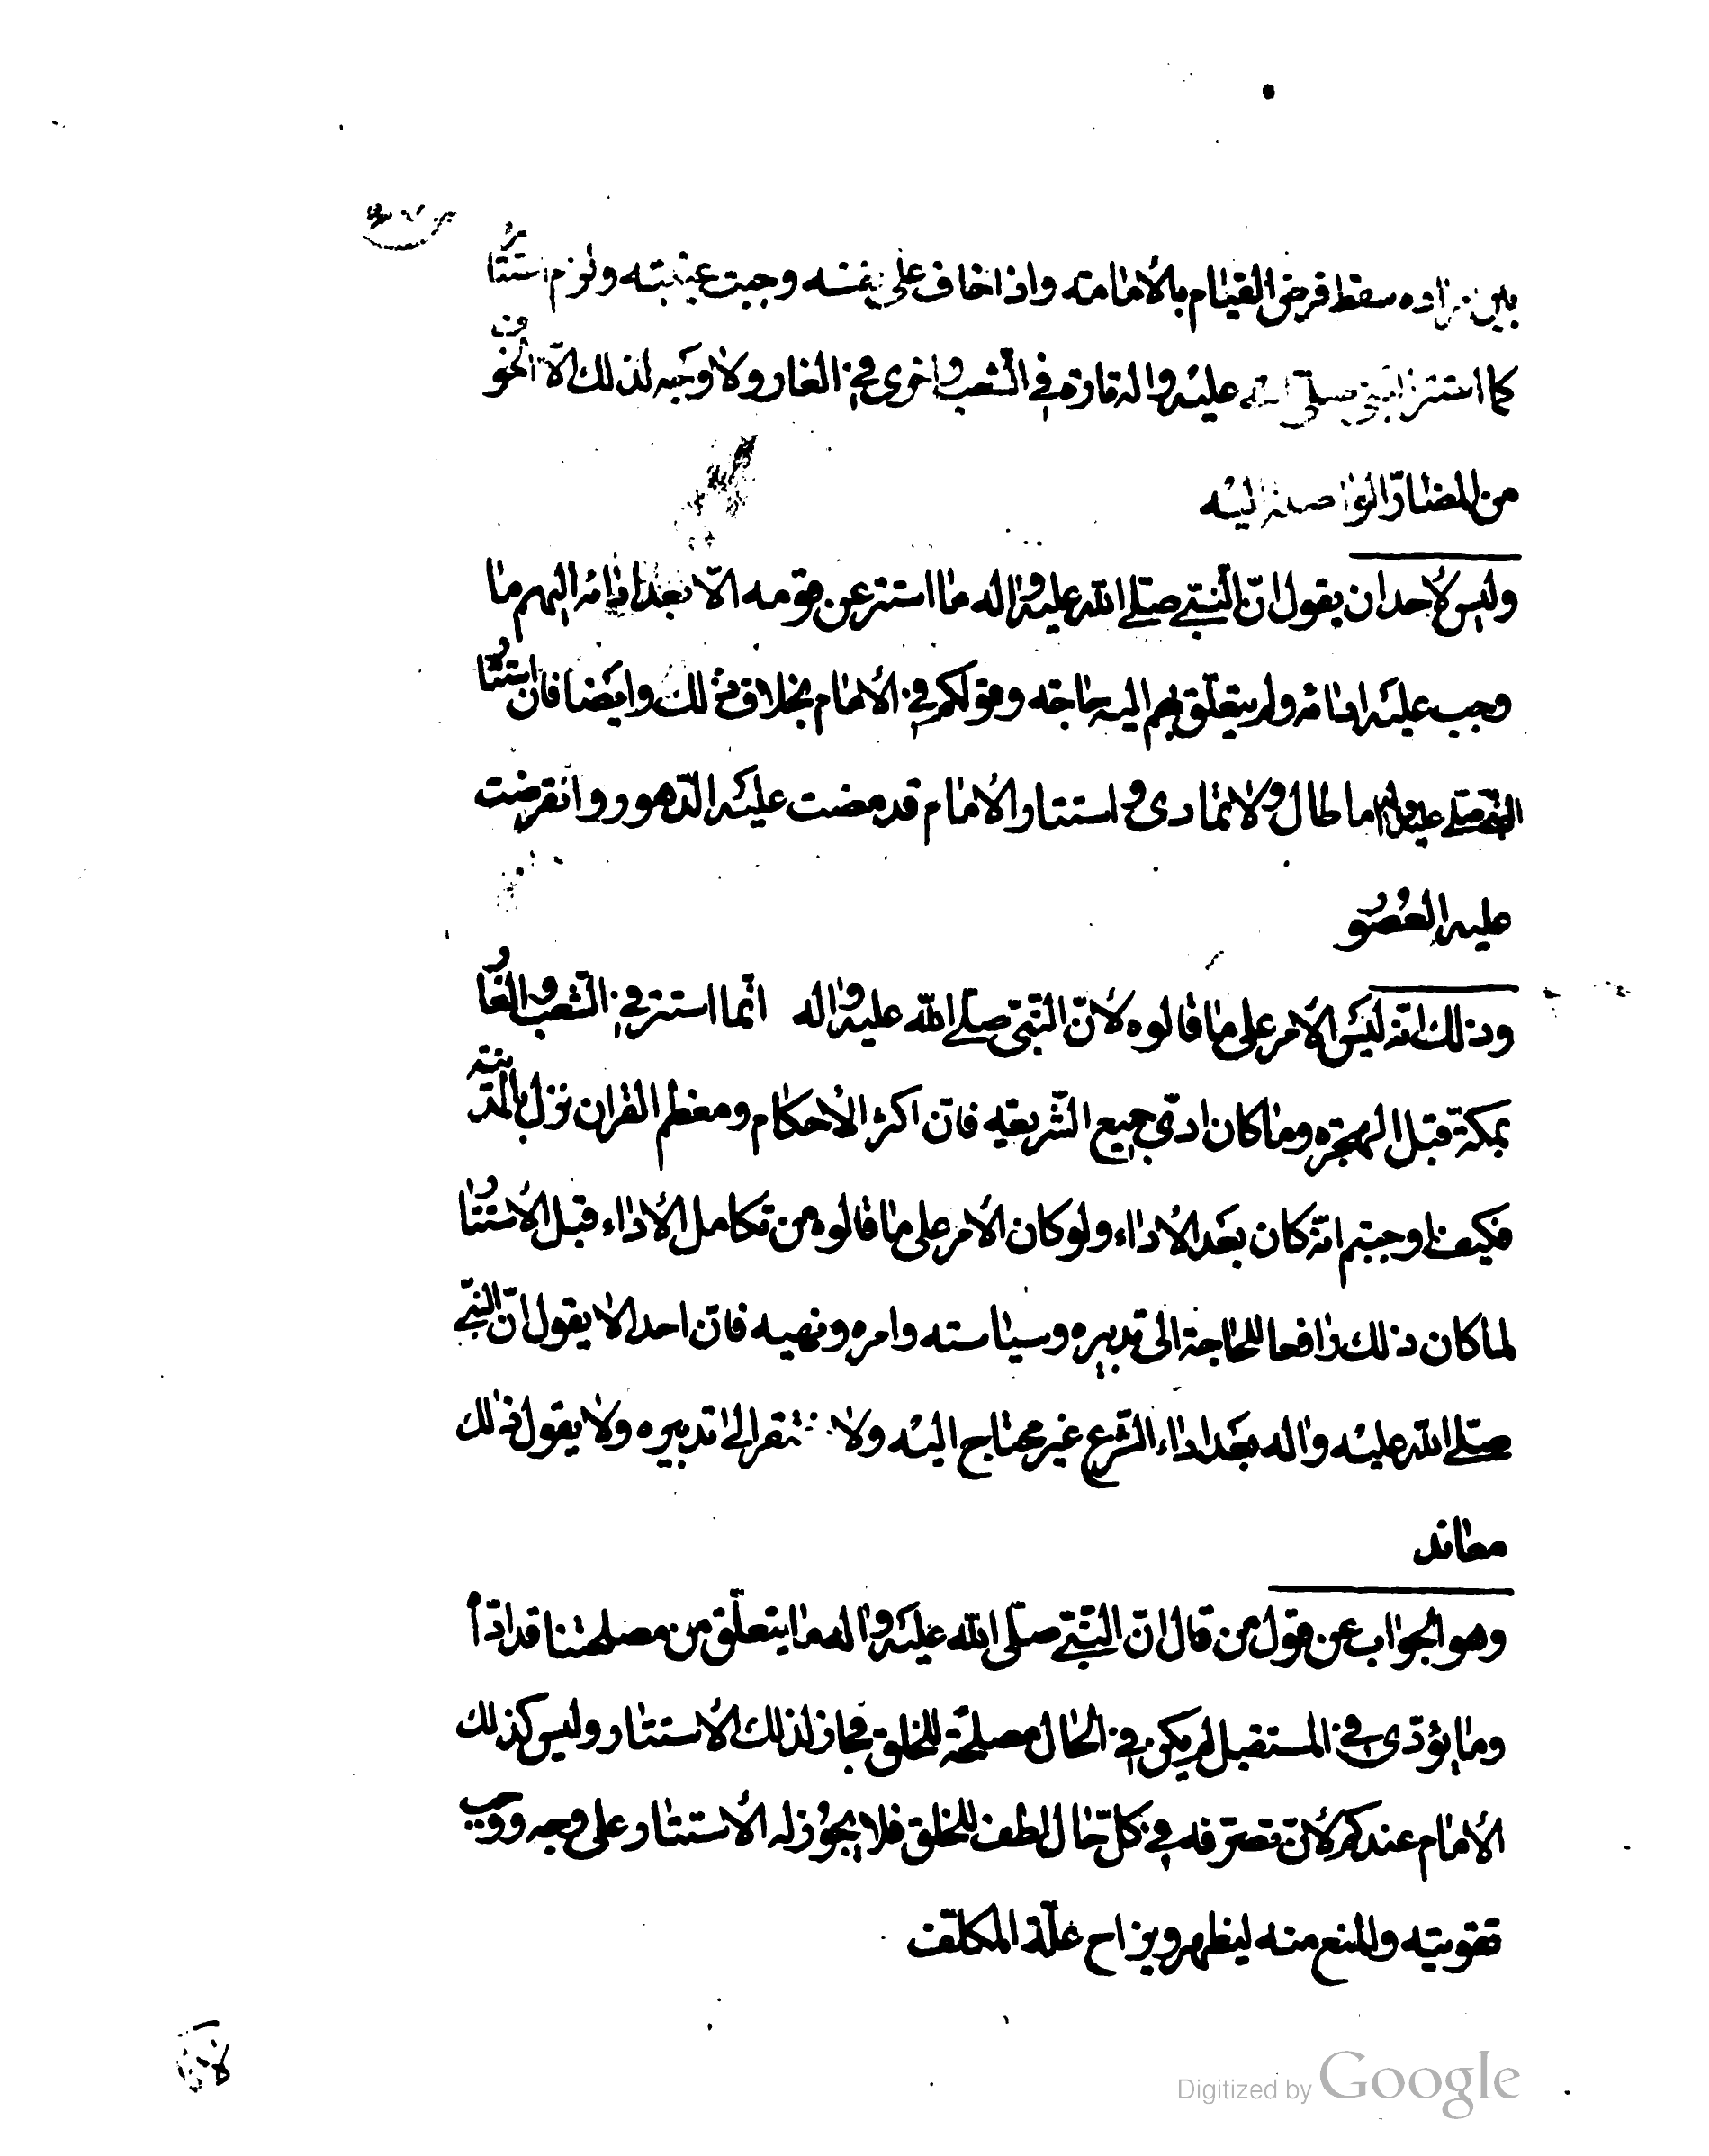 بين مراده سقط فرض القيام بالامامة واذا خاف على نفسه وجبت غيبته ولزم استتار
كما استتر النبي صلى الله عليه واله تارة في الشعب واخرى في الغار ولا وجه لذلك الّا الخوف
من المضارّ الواصلة اليه
وليس لاحد ان يقول انّ النبيّ صلى الله عليه واله ما استتر عن قومه الّا بعد ادائه اليهم ما
وجب عليه ادائه ولم يتعلّق بهم اليه حاجة وقولكم في الامام بخلاف ذلك وايضا فان استتار
النبي صلى عليه واله ما طال ولا تمادى واستتار الامام قد مضت عليه الدّهور وانقرضت
عليه العصور
وذلك انّه ليس الامر على ما قالوه لانّ النبيّ صلى الله عليه واله انّما استتر في الشّعب والغار
بمكّة قبل الهجرة وما كان ادّى جميع الشّريعة فانّ اكثر الاحكام ومعظم القران نزل بالمدينة
فكيف اوجبتم انّه كان بعد الاداء ولو كان الامر على ما قالوه من تكامل الاداء قبل الاستتار
لما كان ذلك رافعا للحاجة الى تدبيره وسياسته وامره ونهيه فانّ احدا لا يقول انّ النبيّ
صلى الله عليه واله بعد اداء الشّرع غير محتاج اليه ولا مفتقر الى تدبيره ولا يقول ذلك
معاند
وهو الجواب عن قول من قال انّ النبيّ صلّى الله عليه واله ما يتعلّق من مصلحتنا قد ادّاه
وما يؤدّى في المستقبل لم يكن في الحال مصلحة للخلق فجاز لذلك الاستتار وليس كذلك
الامام عندكم لانّ تصرّفه في كلّ حال لطف للخلق فلا يجوز له الاستتار على وجه ووجب
تقويته والمنع منه ليظهر ويزاح علّة المكلّف
Digitized by Google